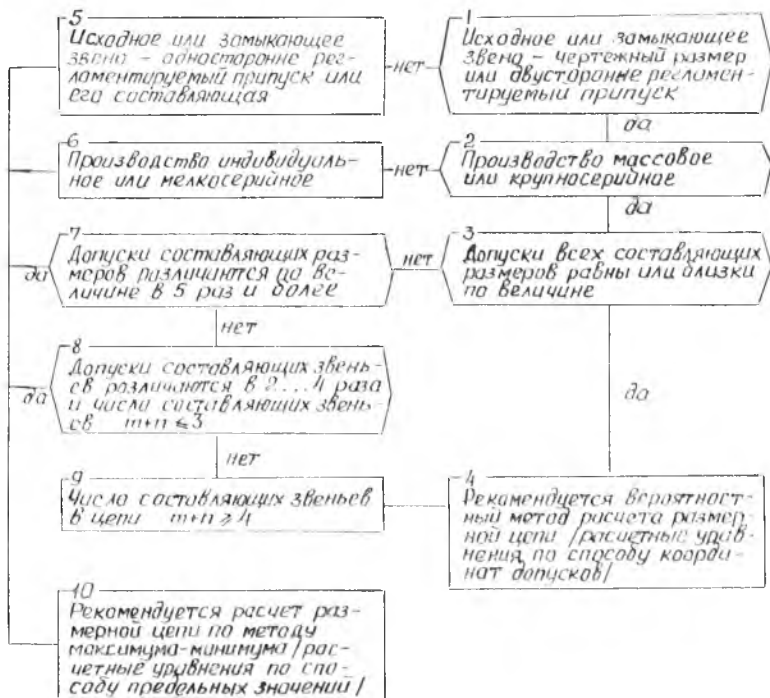 5
Исходное или замыкающее
звено – односторонне рег-
ламентируемый припуск или
его составляющая
нет
1
Исходное или замыкающее
звено – чертежный размер
или двусторонне регламен-
тируемый припуск
да
6
Производство индивидуаль-
ное или мелкосерийное
нет
2
Производство массовое
или крупносерийное
да
7
Допуски составляющих раз-
меров различаются по ве-
личине в 5 раз и более
да
нет
3
Допуски всех составляющих
размеров равны или близки
по величине
нет
да
8
Допуски составляющих звень-
ев различаются в 2...4 раза
и число составляющих звень-
ев m+n ⩽ 3
да
нет
9
Число составляющих звеньев
в цепи m+n ⩾ 4
4
Рекомендуется вероятност-
ный метод расчета размер-
ной цепи /расчетные урав-
нения по способу коорди-
нат допусков/
10
Рекомендуется расчет раз-
мерной цепи по методу
максимума-минимума /рас-
четные уравнения по спо-
собу предельных значений/